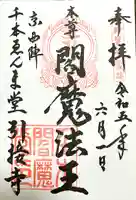 奉拝
令和五年
六月一日
本尊
閻魔法王
京西陣
千本ゑんま堂引接寺